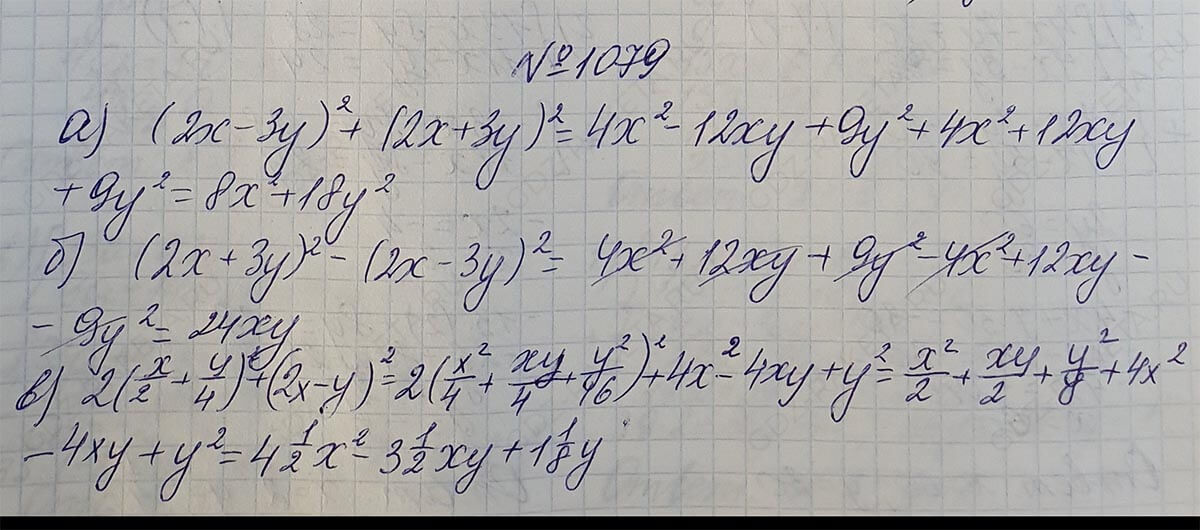 №1079
а) (2x-3y)²+(2x+3y)²=4x²-12xy+9y²+4x²+12xy
+9y²=8x²+18y²
б) (2x+3y)²-(2x-3y)²=4x²+12xy+9y²-4x²+12xy-
-9y²=24xy
в) 2(x/2+y/4)²+(2x-y)²=2(x²/4+xy/4+y²/16)²+4x²-4xy+y²=x²/2+xy/2+y²/8+4x²
-4xy+y²=4 1/2x²-3 1/2xy+1 1/8y